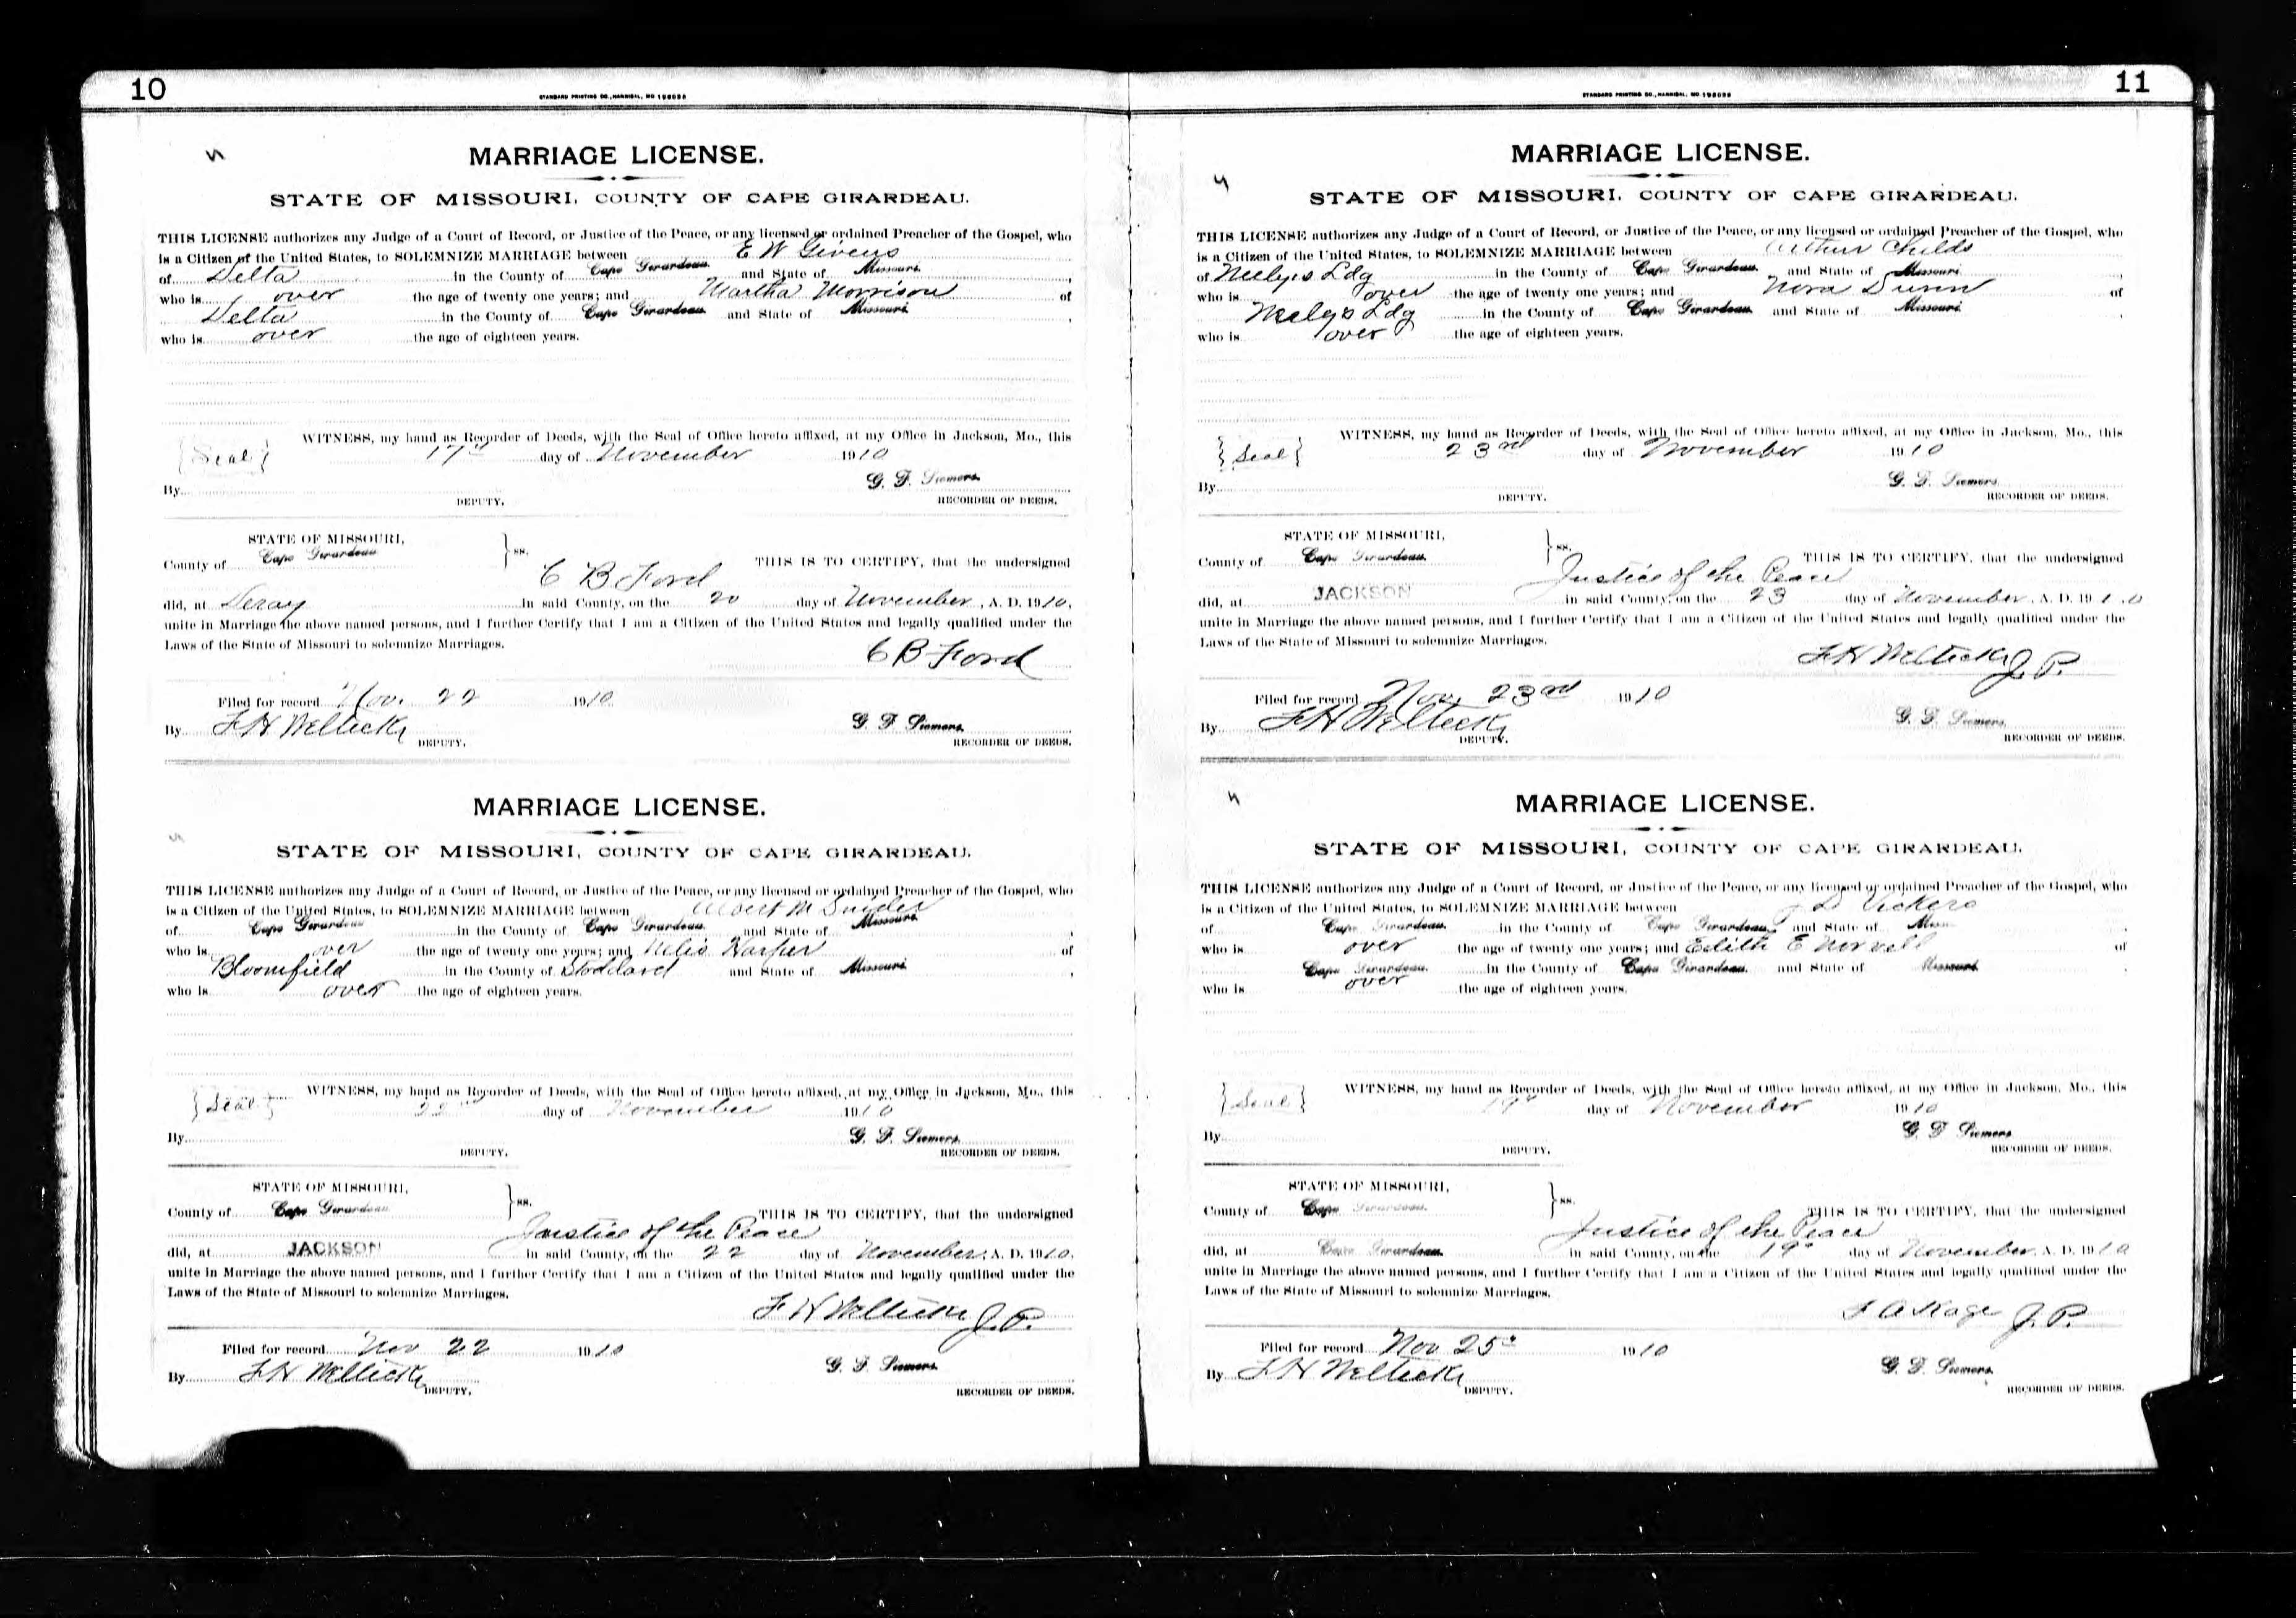 10
STANDARD PRINTING CO., HANNIBAL, MO 195038
MARRIAGE LICENSE.
STATE OF MISSOURI, COUNTY OF CAPE GIRARDEAU.
THIS LICENSE authorizes any Judge of a Court of Record, or Justice of the Peace, or any licensed or ordained Preacher of the Gospel, who
is a Citizen of the United States, to SOLEMNIZE MARRIAGE between E W Givens
of Delta in the County of Cape Girardeau and State of Missouri,
who is over the age of twenty one years; and Martha Morrison of
Delta in the County of Cape Girardeau and State of Missouri,
who is over the age of eighteen years.
WITNESS, my hand as Recorder of Deeds, with the Seal of Office hereto affixed, at my Office in Jackson, Mo., this
{Seal} 17th day of November 1910
G. F. Siemers
By DEPUTY. RECORDER OF DEEDS.
STATE OF MISSOURI, } ss.
County of Cape Girardeau THIS IS TO CERTIFY, that the undersigned
C B Ford
did, at Deray in said County, on the 20 day of November, A. D. 1910,
unite in Marriage the above named persons, and I further Certify that I am a Citizen of the United States and legally qualified under the
Laws of the State of Missouri to solemnize Marriages.
C B Ford
Filed for record Nov. 22 1910
By F H Weltecke DEPUTY. G. F. Siemers
RECORDER OF DEEDS.
MARRIAGE LICENSE.
STATE OF MISSOURI, COUNTY OF CAPE GIRARDEAU.
THIS LICENSE authorizes any Judge of a Court of Record, or Justice of the Peace, or any licensed or ordained Preacher of the Gospel, who
is a Citizen of the United States, to SOLEMNIZE MARRIAGE between Albert M Snider
of Cape Girardeau in the County of Cape Girardeau and State of Missouri
who is over the age of twenty one years; and Harper of
Bloomfield in the County of Stoddard and State of Missouri,
who is over the age of eighteen years.
WITNESS, my hand as Recorder of Deeds, with the Seal of Office hereto affixed, at my Office in Jackson, Mo., this
{Seal} 22nd day of November 1910
G. F. Siemers
By DEPUTY. RECORDER OF DEEDS.
STATE OF MISSOURI, } ss.
County of Cape Girardeau THIS IS TO CERTIFY, that the undersigned
Justice of the Peace
did, at JACKSON in said County, on the 22 day of November, A. D. 1910,
unite in Marriage the above named persons, and I further Certify that I am a Citizen of the United States and legally qualified under the
Laws of the State of Missouri to solemnize Marriages.
F H Weltecke J. P.
Filed for record Nov 22 1910
By F H Weltecke DEPUTY. G. F. Siemers
RECORDER OF DEEDS.
11
STANDARD PRINTING CO., HANNIBAL, MO 195038
MARRIAGE LICENSE.
STATE OF MISSOURI, COUNTY OF CAPE GIRARDEAU.
THIS LICENSE authorizes any Judge of a Court of Record, or Justice of the Peace, or any licensed or ordained Preacher of the Gospel, who
is a Citizen of the United States, to SOLEMNIZE MARRIAGE between Arthur Childs
of Neelys Ldg in the County of Cape Girardeau and State of Missouri,
who is over the age of twenty one years; and Nora Dunn of
Neelys Ldg in the County of Cape Girardeau and State of Missouri
who is over the age of eighteen years.
WITNESS, my hand as Recorder of Deeds, with the Seal of Office hereto affixed, at my Office in Jackson, Mo., this
{Seal} 23rd day of November 1910
G. F. Siemers
By DEPUTY. RECORDER OF DEEDS.
STATE OF MISSOURI, } ss.
County of Cape Girardeau THIS IS TO CERTIFY, that the undersigned
Justice of the Peace
did, at JACKSON in said County, on the 23 day of November, A. D. 1910
unite in Marriage the above named persons, and I further Certify that I am a Citizen of the United States and legally qualified under the
Laws of the State of Missouri to solemnize Marriages.
F H Weltecke J. P.
Filed for record Nov. 23rd 1910
By F H Weltecke DEPUTY. G. F. Siemers
RECORDER OF DEEDS.
MARRIAGE LICENSE.
STATE OF MISSOURI, COUNTY OF CAPE GIRARDEAU.
THIS LICENSE authorizes any Judge of a Court of Record, or Justice of the Peace, or any licensed or ordained Preacher of the Gospel, who
is a Citizen of the United States, to SOLEMNIZE MARRIAGE between D Vickers
of Cape Girardeau in the County of Cape Girardeau and State of
who is over the age of twenty one years; and Edith E Norvell of
Cape Girardeau in the County of Cape Girardeau and State of Missouri
who is over the age of eighteen years.
WITNESS, my hand as Recorder of Deeds, with the Seal of Office hereto affixed, at my Office in Jackson, Mo., this
{Seal} 19th day of November 1910
G. F. Siemers
By DEPUTY. RECORDER OF DEEDS.
STATE OF MISSOURI, } ss.
County of Cape Girardeau THIS IS TO CERTIFY, that the undersigned
Justice of the Peace
did, at Cape Girardeau in said County, on the 19 day of November, A. D. 1910
unite in Marriage the above named persons, and I further Certify that I am a Citizen of the United States and legally qualified under the
Laws of the State of Missouri to solemnize Marriages.
F A Kage J. P.
Filed for record Nov 25th 1910
By F H Weltecke DEPUTY. G. F. Siemers
RECORDER OF DEEDS.